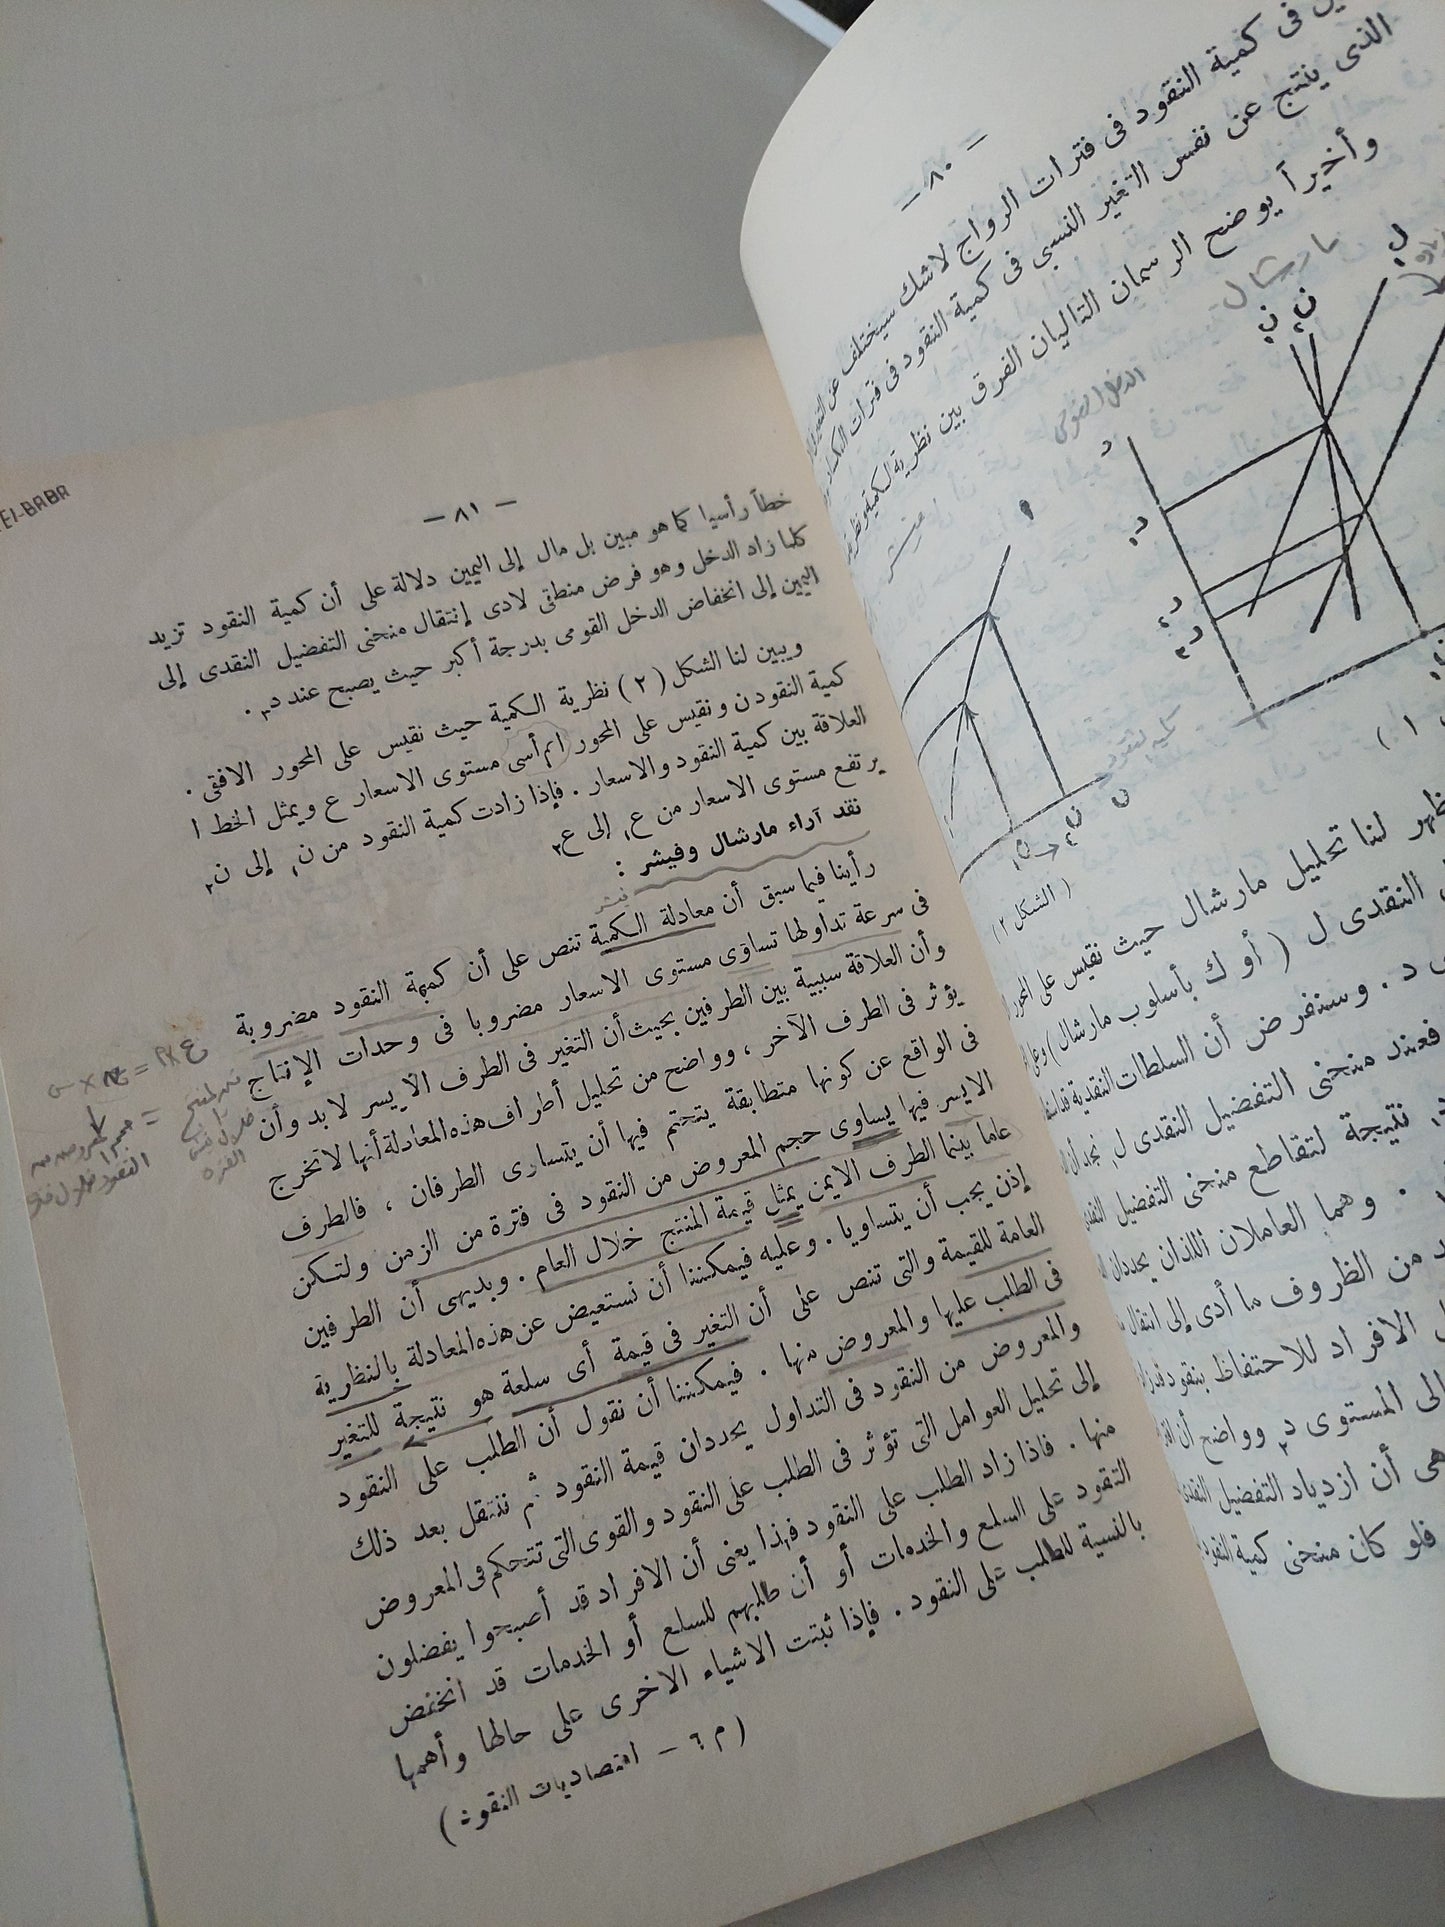 — ٨٠ —
فى كمية النقود فى فترات الرواج لاشك سيختلف عن
الذى ينتج عن نفس التغير النسبى فى كمية النقود فى فترات
وأخيراً يوضح الرسمان التاليان الفرق بين نظرية الكمية ونظرية
مارشال
الدخل القومى
فيشر
ل
ن ن
د
د١
د٢
د٣
كمية النقود
ن١ ن٢ ن
( الشكل ٢ )
لنا تحليل مارشال حيث نقيس على المحور
النقدى ل ( أو ك بأسلوب مارشال ) وعلى
د . وسنفرض أن السلطات النقدية
فعند منحنى التفضيل النقدى ل١ نجد أن
نتيجة لتقاطع منحنى التفضيل
. وهما العاملان اللذان يحددان
من الظروف ما أدى إلى انتقال
الافراد للاحتفاظ بنقود
الى المستوى د٢ وواضح أن
هى أن ازدياد التفضيل
فلو كان منحنى كمية النقود
EL-BABA
— ٨١ —
خطاً رأسيا كما هو مبين بل مال إلى اليمين دلالة على أن كمية النقود تزيد
كلما زاد الدخل وهو فرض منطقى لادى إنتقال منحنى التفضيل النقدى إلى
اليمين إلى انخفاض الدخل القومى بدرجة أكبر حيث يصبح عند د٣ .
ويبين لنا الشكل ( ٢ ) نظرية الكمية حيث نقيس على المحور الافقى .
كمية النقود ن ونقيس على المحور الرأسى مستوى الاسعار ع ويمثل الخط ا
العلاقة بين كمية النقود والاسعار . فإذا زادت كمية النقود من ن١ إلى ن٢
يرتفع مستوى الاسعار من ع١ إلى ع٢
نقد آراء مارشال وفيشر :
فيشر
رأينا فيما سبق أن معادلة الكمية تنص على أن كمية النقود مضروبة
فى سرعة تداولها تساوى مستوى الاسعار مضروبا فى وحدات الإنتاج
وأن العلاقة سببية بين الطرفين بحيث أن التغير فى الطرف الايسر لا بد وأن
يؤثر فى الطرف الآخر ، وواضح من تحليل أطراف هذه المعادلة أنها لا تخرج
فى الواقع عن كونها متطابقة يتحتم فيها أن يتساوى الطرفان ، فالطرف
الايسر فيها يساوى حجم المعروض من النقود فى فترة من الزمن ولتكن
عاما بينما الطرف الايمن يمثل قيمة المنتج خلال العام . وبديهى أن الطرفين
إذن يجب أن يتساويا . وعليه فيمكننا أن نستعيض عن هذه المعادلة بالنظرية
العامة للقيمة والتى تنص على أن التغير فى قيمة أى سلعة هو نتيجة للتغير
فى الطلب عليها والمعروض منها . فيمكننا أن نقول أن الطلب على النقود
والمعروض من النقود فى التداول يحددان قيمة النقود ثم ننتقل بعد ذلك
إلى تحليل العوامل التى تؤثر فى الطلب على النقود والقوى التى تتحكم فى المعروض
منها . فاذا زاد الطلب على النقود فهذا يعنى أن الافراد قد أصبحوا يفضلون
النقود على السلع والخدمات أو أن طلبهم للسلع أو الخدمات قد انخفض
بالنسبة للطلب على النقود . فإذا ثبتت الاشياء الاخرى على حالها وأهمها
( م ٦ — اقتصاديات النقود )